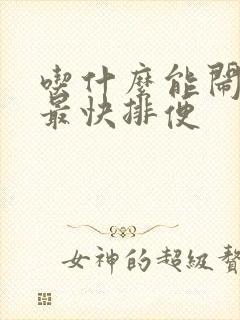 喫什麼能鬧
最快排便
女神的超級贅